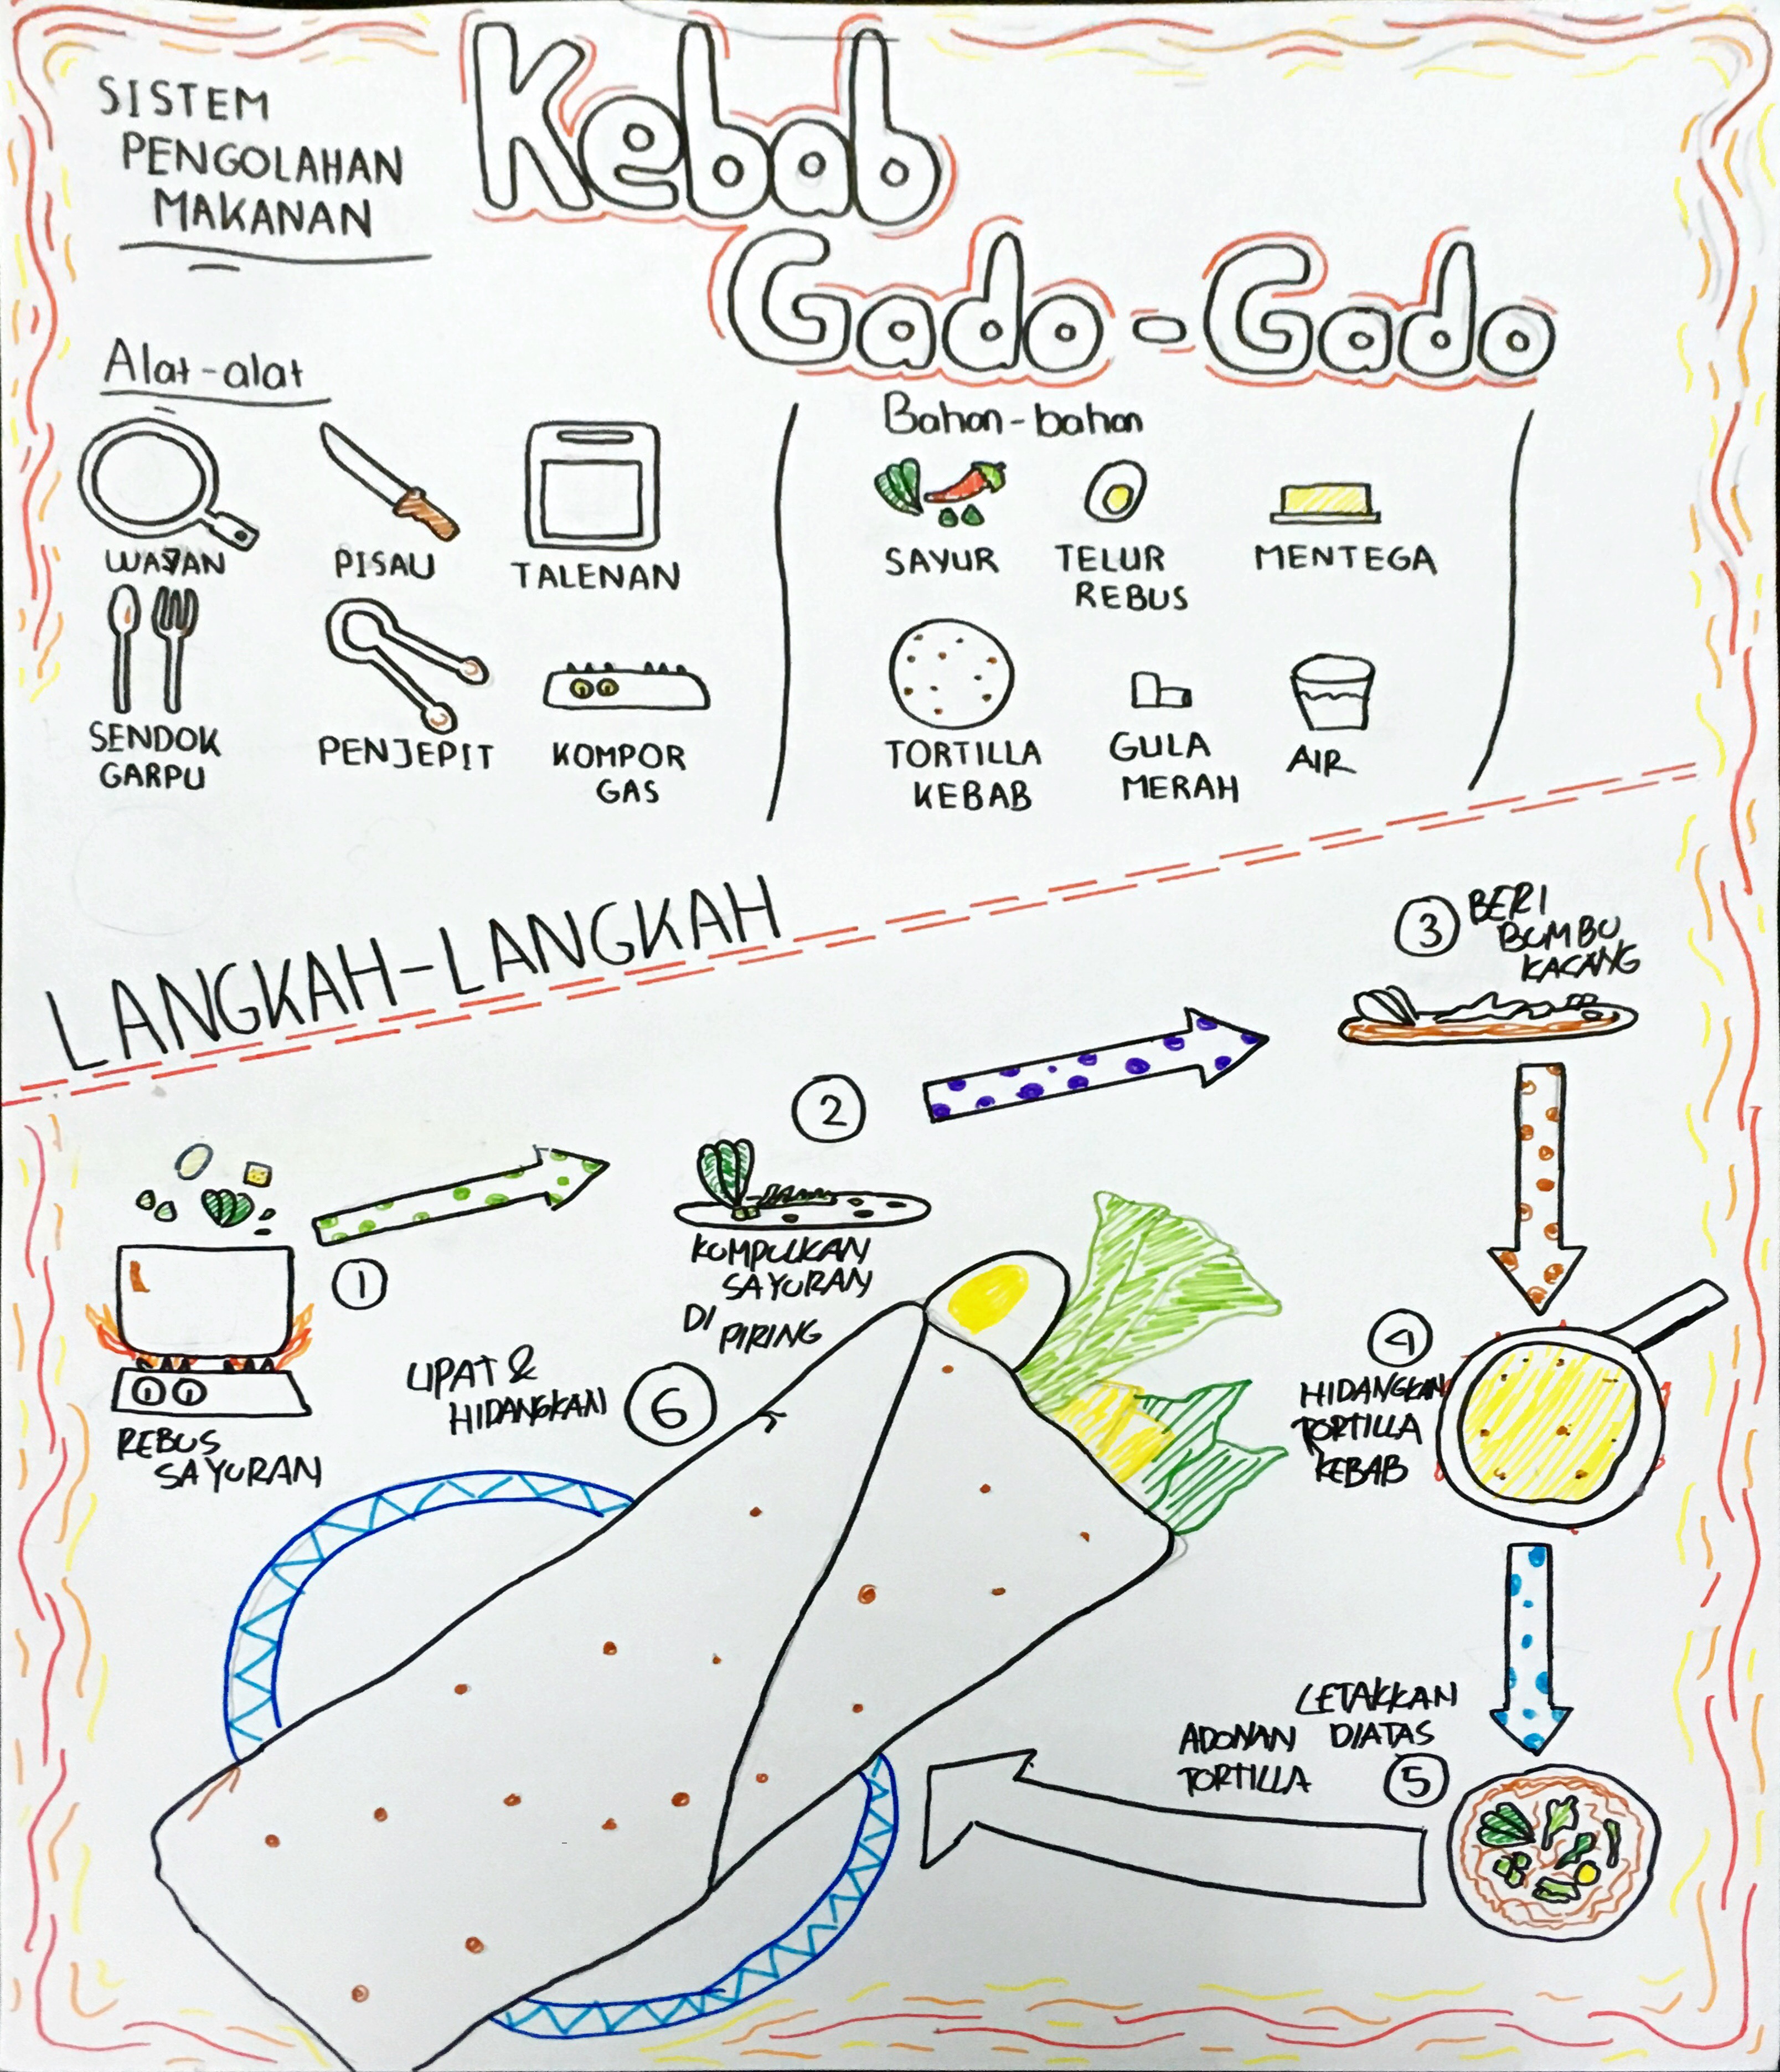 SISTEM
PENGOLAHAN
MAKANAN
Kebab
Gado-Gado
Alat-alat
WAJAN
PISAU
TALENAN
SENDOK
GARPU
PENJEPIT
KOMPOR
GAS
Bahan-bahan
SAYUR
TELUR
REBUS
MENTEGA
TORTILLA
KEBAB
GULA
MERAH
AIR
LANGKAH-LANGKAH
1
REBUS
SAYURAN
2
KUMPULKAN
SAYURAN
DI PIRING
3 BERI
BUMBU
KACANG
4
HIDANGKAN
TORTILLA
KEBAB
LETAKKAN
ADONAN DIATAS
TORTILLA 5
LIPAT &
HIDANGKAN 6